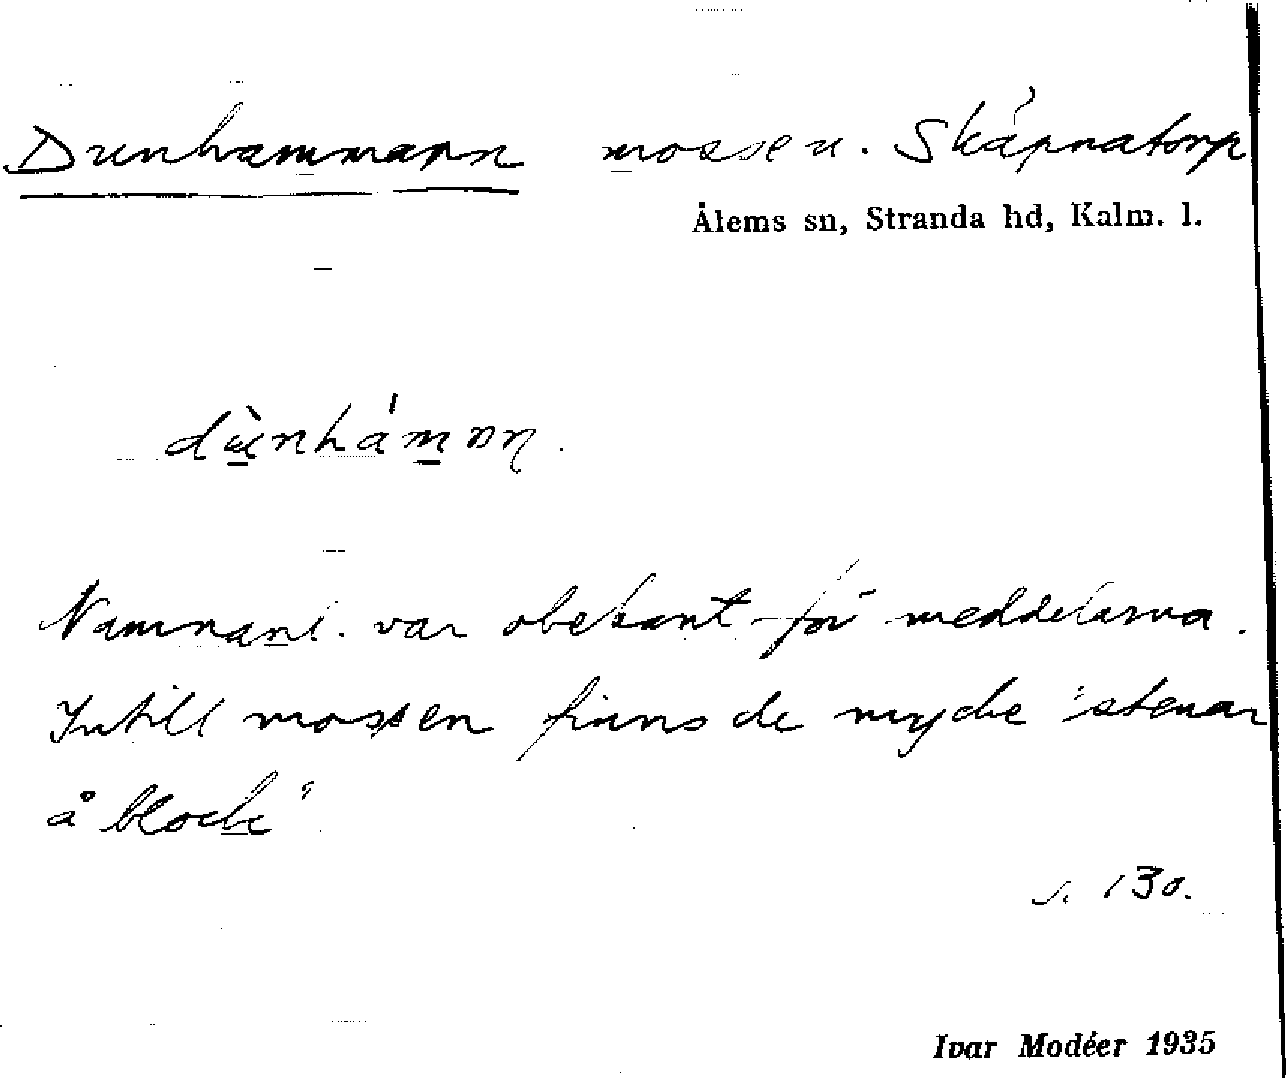 Dunhammarn mosse n. Skäpnatorp
Ålems sn, Stranda hd, Kalm. l.
Namnanl. var obekant för meddelarna.
Intill mossen finns de mycke "stenar
å block"
s. 130.
Ivar Modéer 1935